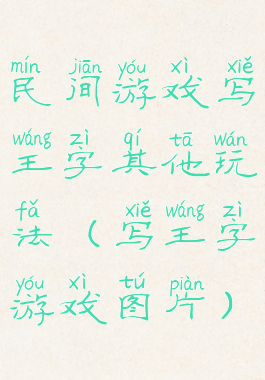 mín jiān yóu xì xiě
民间游戏写
wáng zì qí tā wán
王字其他玩
fǎ xiě wáng zì
法（写王字
yóu xì tú piàn
游戏图片）